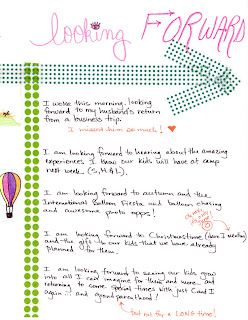 looking FORWARD
I woke this morning looking
forward to my husband's return
from a business trip.
I missed him so much!
I am looking forward to hearing about the amazing
experiences I know our kids will have at camp
next week. (S, M & L).
I am looking forward to autumn and the
International Balloon Fiesta and balloon chasing
and awesome photo opps!
I am looking forward to Christmastime (dare I mention)
and the gift to our kids that we have already
planned for them.
I am looking forward to seeing our kids grow
into all I can imagine for them and more... and
returning to some special times with just C and I
again... and grandparenthood!
but not for a LONG time!